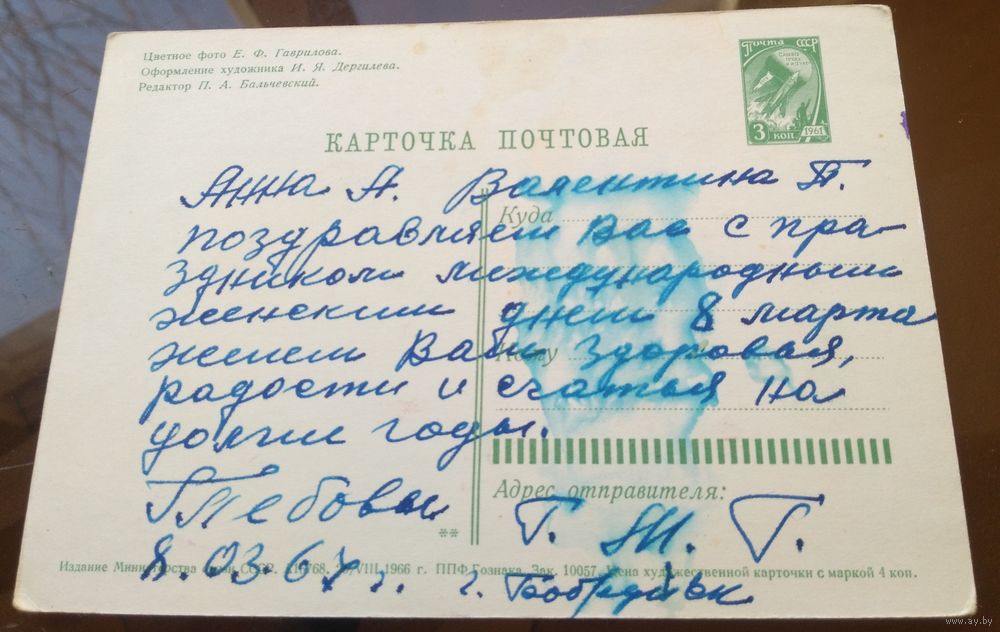 Цветное фото Е. Ф. Гаврилова.
Оформление художника И. Я. Дергилева.
Редактор П. А. Бальчевский.
ПОЧТА СССР
3 КОП. 1961
КАРТОЧКА ПОЧТОВАЯ
Анна А. Валентина П.
Куда
поздравляем Вас с пра-
здником международным
женским днем 8 марта
желаем Вам здоровья,
Кому
радости и счастья на
долгие годы.
Адрес отправителя:
Глебовы Г. М. Г.
**
8.03.67 г. г. Бобруйск
Издание Министерства связи СССР. 25/VIII.1966 г. ППФ Гознака. Зак. 10057. Цена художественной карточки с маркой 4 коп.
www.ay.by